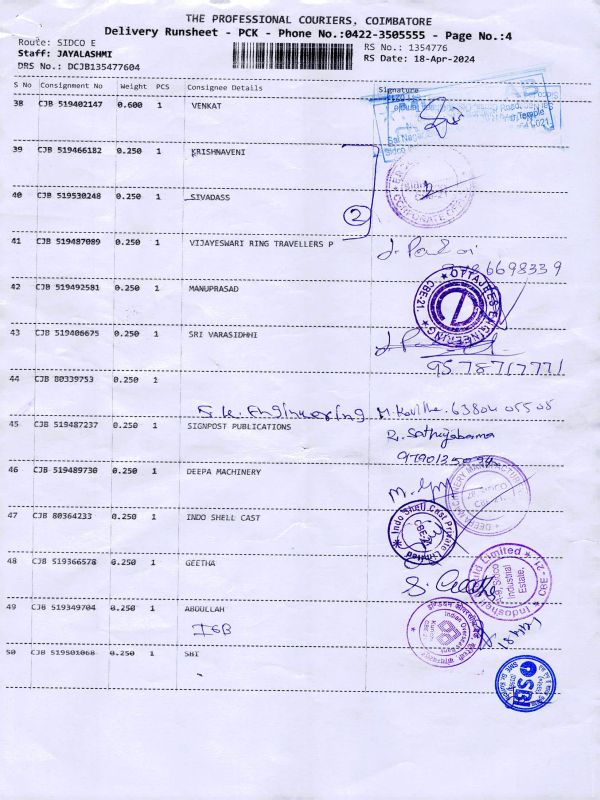 THE PROFESSIONAL COURIERS, COIMBATORE
Delivery Runsheet - PCK - Phone No.:0422-3505555 - Page No.:4
Route: SIDCO E
RS No.: 1354776
Staff: JAYALASHMI
RS Date: 18-Apr-2024
DRS No.: DCJB135477604
S No Consignment No Weight PCS Consignee Details Signature
38 CJB 519402147 0.600 1 VENKAT
39 CJB 519466182 0.250 1 KRISHNAVENI
40 CJB 519530248 0.250 1 SIVADASS
2
41 CJB 519487089 0.250 1 VIJAYESWARI RING TRAVELLERS P
6698339
42 CJB 519492581 0.250 1 MANUPRASAD
OTTAJEES ENGINEERING
CBE-21.
43 CJB 519406675 0.250 1 SRI VARASIDHHI
9578717771
44 CJB 80339753 1
S.K. Engineering
45 CJB 519487237 0.250 1 SIGNPOST PUBLICATIONS
R. Sathyabama
46 CJB 519489730 0.250 1 DEEPA MACHINERY
DEEPA MACHINERY MANUFACTUR
47 CJB 80364233 0.250 1 INDO SHELL CAST
Indo Shell Cast Private Limited
CBE-21
48 CJB 519366578 0.250 1 GEETHA
S. Geetha
Indoshell Mould Limited
A-9, Sidco
Industrial
Estate,
CBE - 21
49 CJB 519349704 0.250 1 ABDULLAH
IOB
Indian Overseas Bank
50 CJB 519501068 0.250 1 SBI
SBI